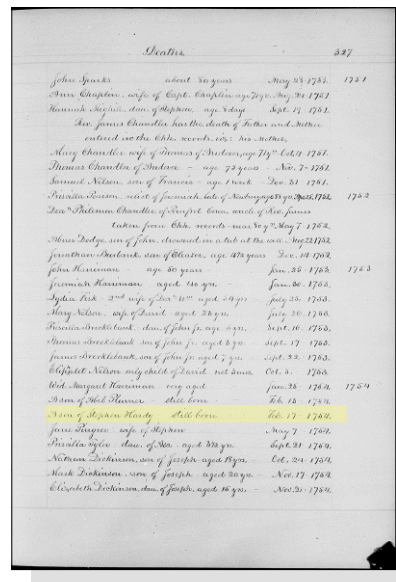 Deaths 327
John Sparks about 80 years May 28 1751. 1751
Ann Chaplin, wife of Capt. Chaplin age Aug. 20 1751
Hannah dau. of Stephen, age 8 days Sept. 17 1751.
Rev. James Chandler has the death of Father and Mother
entered in the Chh. records, viz: his Mother,
Mary Chandler wife of Thomas of Andover, age Oct. 1751.
Thomas Chandler of Andover - age 72 years - Nov. 7 - 1751.
Samuel Nelson, son of Francis - age 1 week - Dec. 31 1751.
Priscilla Pearson relict of Jeremiah, late of Newbury 1752. 1752
Deacn Philemon Chandler of Pomfret Conn. uncle of Rev. James
taken from Chh. records - near May 7, 1752.
Abner Dodge, son of John, drowned in a tub at the 1752.
Jonathan Burbank, son of Eleazer, age years Dec. 1752.
John Harriman - age 80 years - Jan. 25 - 1753. 1753
Jeremiah Harriman aged yrs. Jan. 30 1753.
Lydia Fisk - 2nd wife of Deacn Wm aged 54 yrs. July 23 1753.
Mary Nelson, wife of David - aged 28 yrs July 30 1753.
Priscilla Brocklebank, dau. of John Jr. age yrs. Sept. 16 1753.
Thomas Brocklebank son of John Jr. aged yrs. Sept. 17 1753.
James Brocklebank, son of John Jr. aged 7 yrs. Sept. 22 1753.
Nelson only child of David Oct. 1753.
Wid. Margaret Harriman very aged Jan. 28 1754. 1754
A son of Abel Plumer still born - Feb. 15 1754.
A son of Stephen Hardy still born Feb. 17 - 1754.
Jane Pingree wife of Stephen May 7 1754.
Priscilla Tyler dau. of Asa aged yrs Sept. 21 1754.
Nathan Dickinson, son of Joseph aged yrs. Oct. 24 1754.
Mark Dickinson, son of Joseph aged 20 yrs - Nov. 17 1754.
Elizabeth Dickinson, dau. of Joseph, aged 16 yrs. Nov. 21 1754.